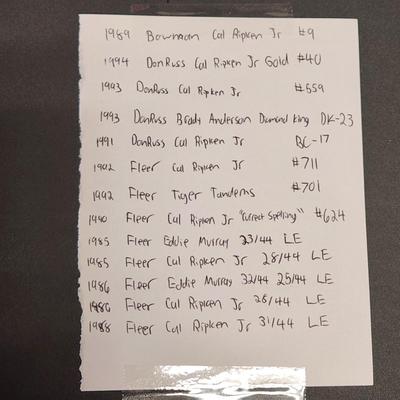 1989 Bowman Cal Ripken Jr #9
1994 DonRuss Cal Ripken Jr Gold #40
1993 DonRuss Cal Ripken Jr #559
1993 DonRuss Brady Anderson Diamond King DK-23
1991 DonRuss Cal Ripken Jr BC-17
1992 Fleer Cal Ripken Jr #711
1992 Fleer Tiger Tandems #701
1990 Fleer Cal Ripken Jr "Correct Spelling" #624
1985 Fleer Eddie Murray 23/44 LE
1985 Fleer Cal Ripken Jr 28/44 LE
1986 Fleer Eddie Murray 32/44 25/44 LE
1986 Fleer Cal Ripken Jr 26/44 LE
1988 Fleer Cal Ripken Jr 31/44 LE